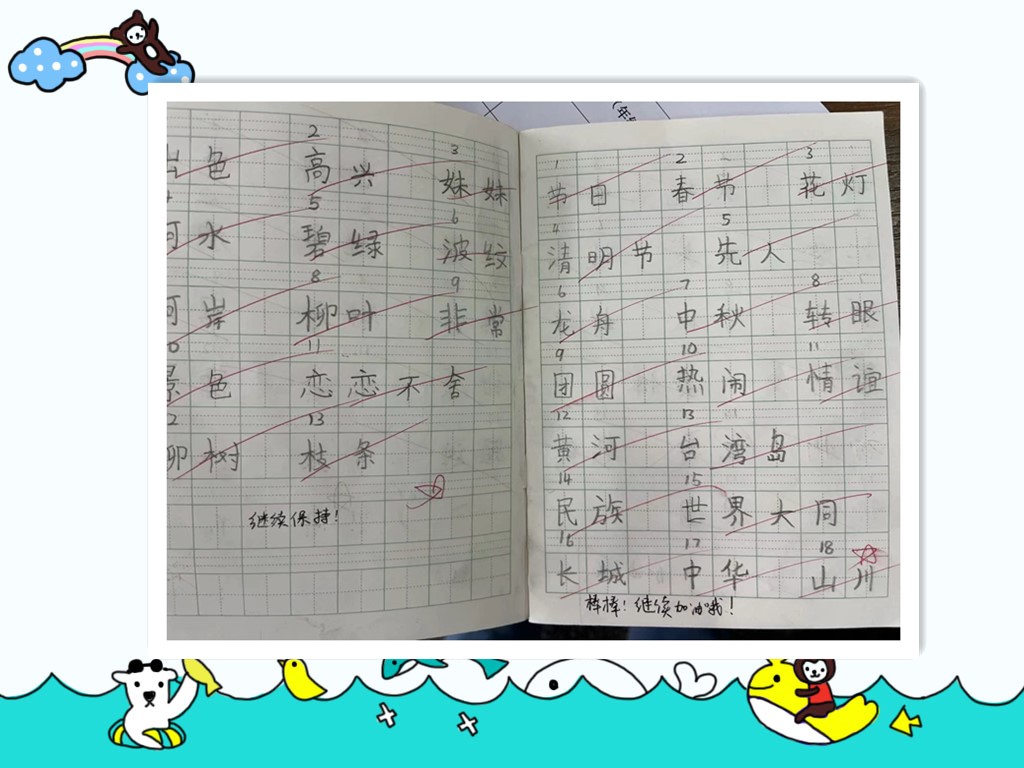 2 3
色 高兴 妹妹
5 6
水 碧绿 波纹
8 9
岸 柳叶 非常
11
景色 恋恋不舍
13
树 枝条
继续保持！
1 2 3
节日 春节 花灯
4 5
清明节 先人
6 7 8
龙舟 中秋 转眼
9 10 11
团圆 热闹 情谊
12 13
黄河 台湾岛
14 15
民族 世界大同
16 17 18
长城 中华 山川
棒棒！继续加油哦！